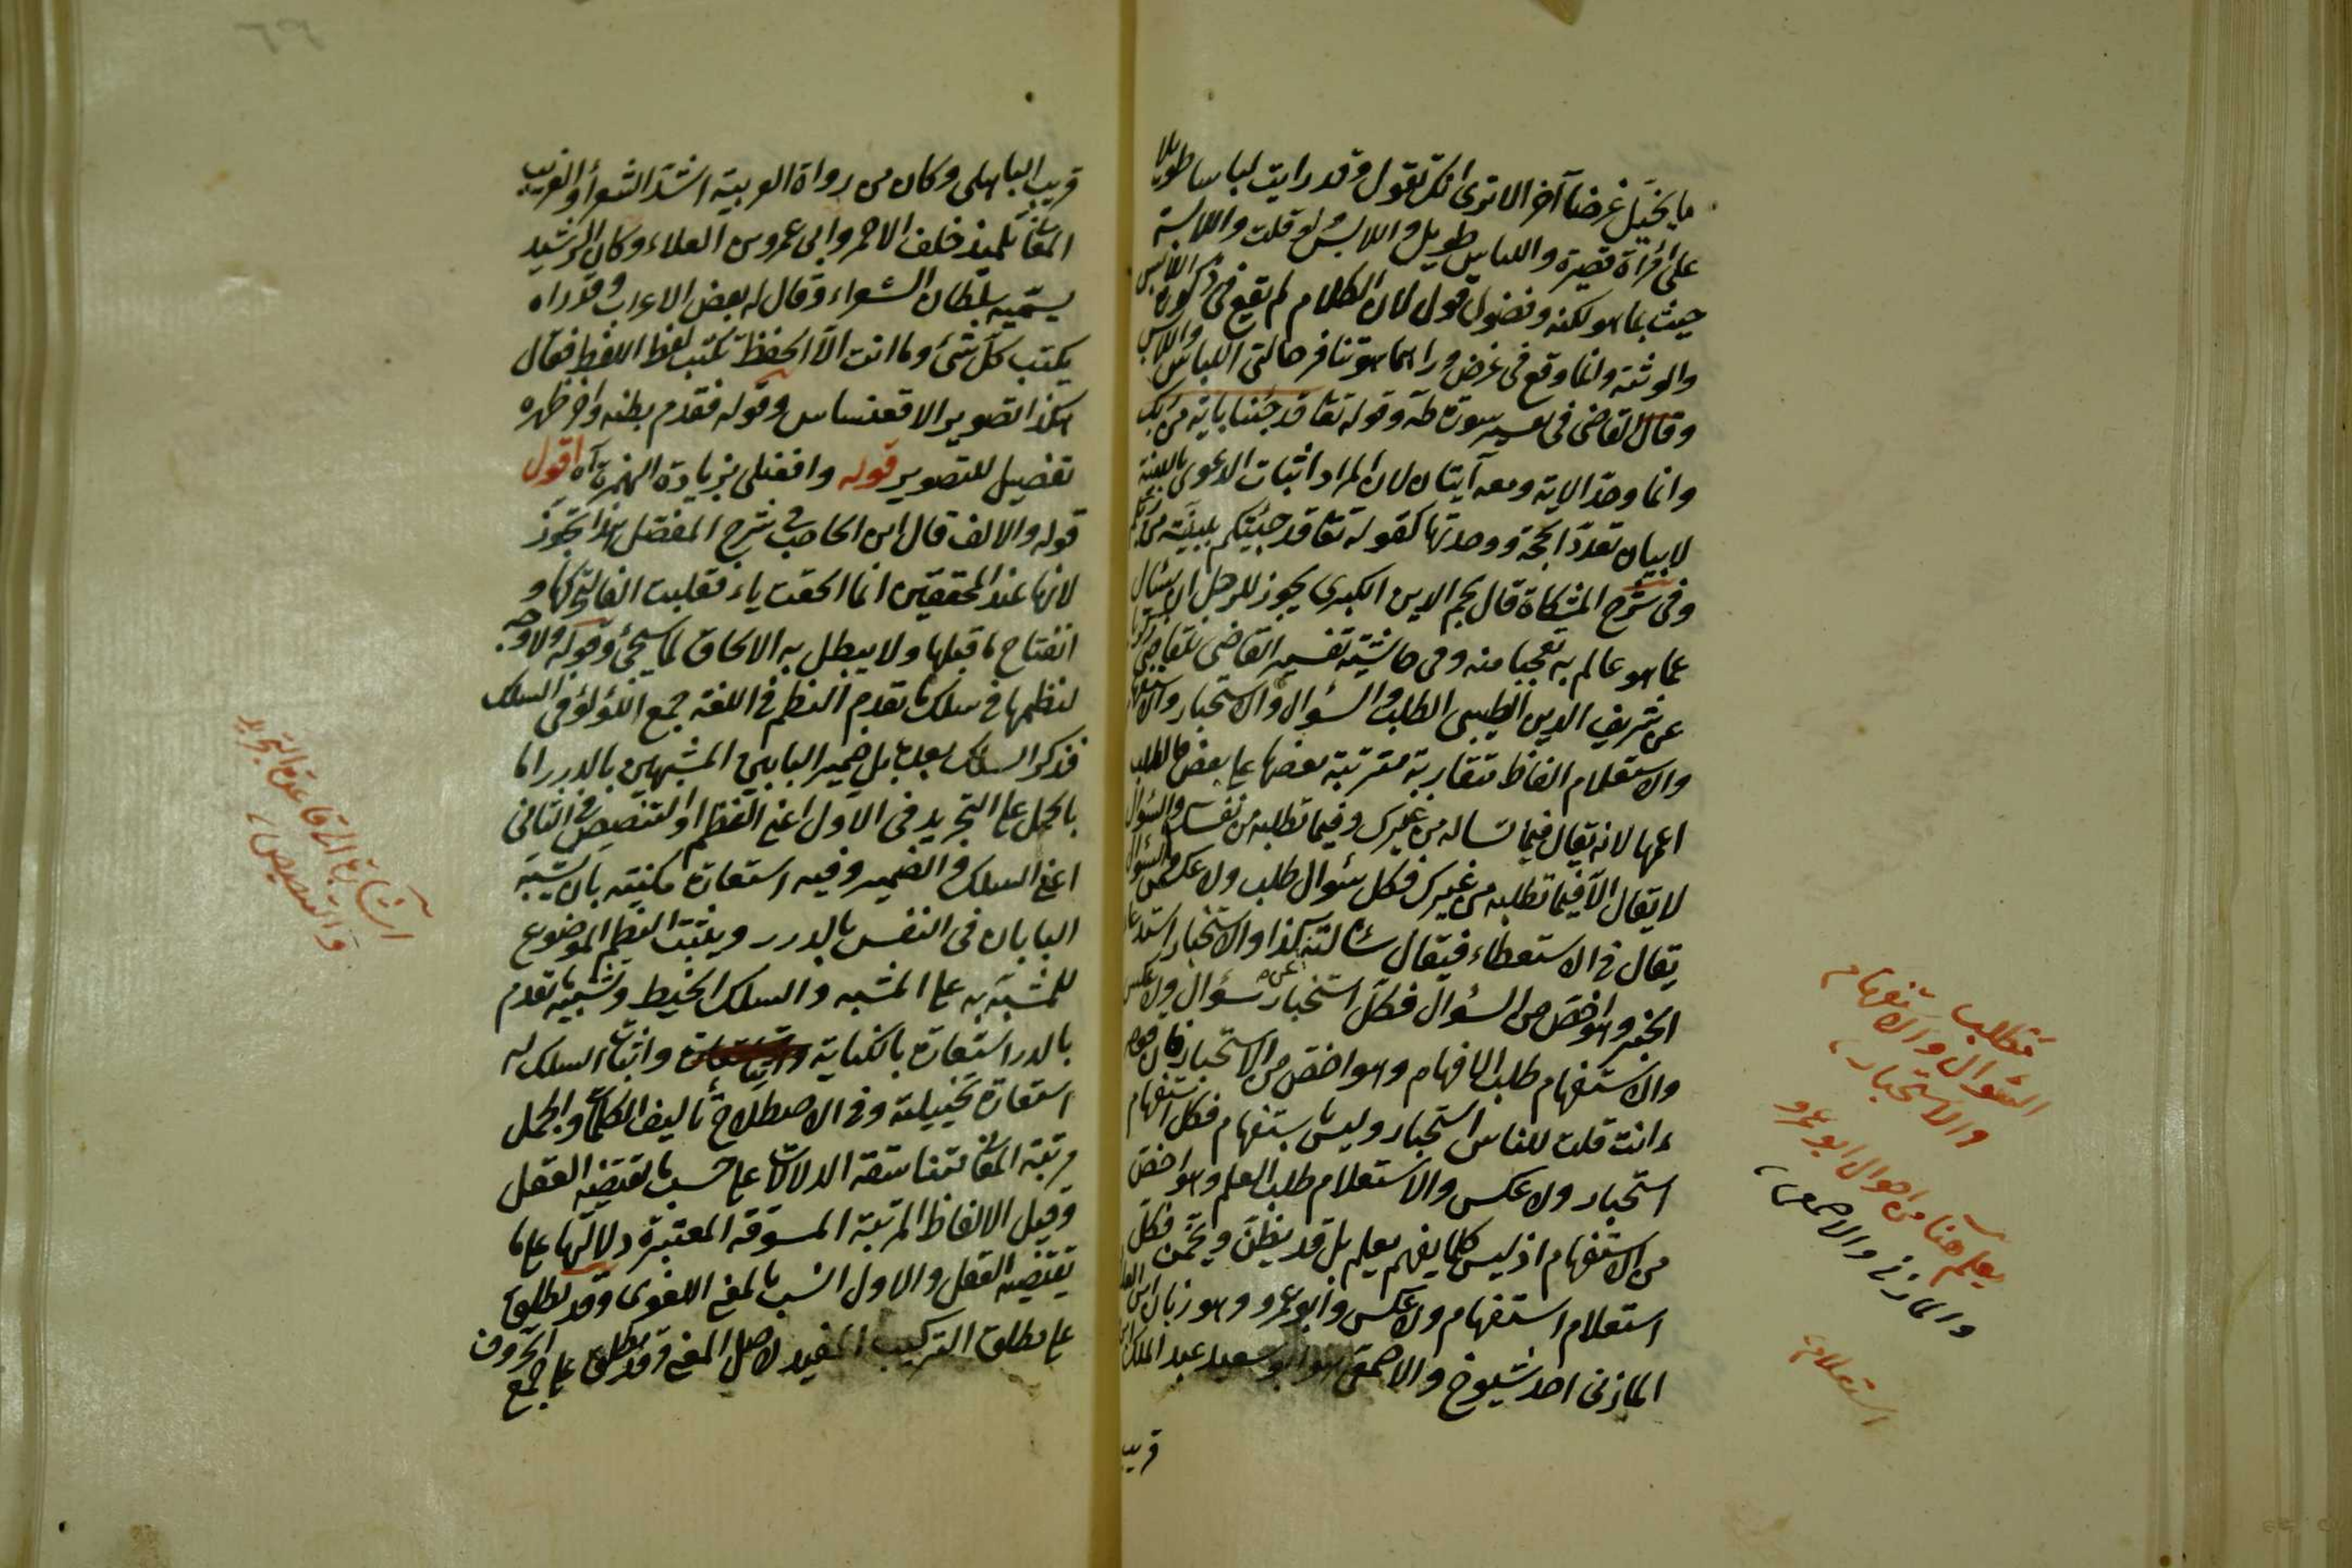 ما يخيل غرضا آخر الا ترى انك تقول وقد رايت لباسا طويلا
على امرأة قصيرة واللباس طويل واللابس لو قلت واللابسة
حيث بما هو لكنه وفضول قول لان الكلام لم يقع في ذكورة اللابس
والوثته وانما وقع في غرض وراءهما هو تنافر حالتي اللباس واللابس
وقال القاضي في تفسير سورة طه وقوله تعا قد جئناك باية من ربك
وانما وحد الاية ومعه آيتان لان المراد اثبات الدعوى بالبينة
لا بيان تعدد الحجة ووحدتها كقوله تعا قد جئتكم ببينة من ربكم
وفي شرح المشكاة قال نجم الدين الكبرى يجوز للرجل ان يسئال
عما هو عالم به تعجبا منه وفي حاشية تفسير القاضي للقاضي زكريا
عن شريف الدين الطيبي الطلب والسؤال والاستخبار والاستفهام
والاستعلام الفاظ متقاربة مترتبة بعضها على بعض فالطلب
اعمها لانه يقال فيما تساله من غيرك وفيما تطلبه من نفسك والسؤال
لا يقال الا فيما تطلبه من غيرك فكل سئوال طلب ولا عكس والسؤال
يقال في الاستعطاء فيقال سئالته كذا والاستخبار استدعاء
الخبر وهو اخص من السؤال فكل استخبار سؤال ولا عكس
والاستفهام طلب الافهام وهو اخص من الاستخبار فان قوله
ءانت قلت للناس استخبار وليس باستفهام فكل استفهام
استخبار ولا عكس والاستعلام طلب العلم وهو اخص
من الاستفهام اذ ليس كلما يفهم يعلم بل قد يظن ويخمن فكل
استعلام استفهام ولا عكس وابو عمرو وهو زبان ابن العلا
المازني احد شيوخ والاصمعي هو ابو سعيد عبد الملك ابن
قريب
مطلب
السئوال والاستفهام
والاستخبار
يعلم هنا من احوال ابو عمرو
والمازني والاصمعي
استعلام
قريب الباهلى وكان من رواة العربية اشد الشعر والغريب
المعاني تلميذ خلف الاحمر وابى عمرو بن العلاء وكان الرشيد
يسميه بسلطان الشعراء وقال له بعض الاعراب وقد راه
يكتب كل شئ وما انت الا الحفظة تكتب لفظ اللفظ فقال
هكذا تصوير الاقعنساس وقوله فقدم بطنه واخر ظهره
تفصيل للتصوير قوله وافعنلى بزيادة الهمزة آه اقول
قوله والالف قال ابن الحاجب في شرح المفصل هذا تجوز
لانها عند المحققين انما الحقت ياء فقلبت الفا لتحركها و
انفتاح ما قبلها ولا يبطل به الالحاق لما سيجئ وقوله ولا وجه
لنظمها في سلك ما تقدم النظم في اللغة جمع اللؤلؤ في السلك
فذكر السلك بعده بل ضمير البابين المشبهين بالدرر اما
بالحمل على التجريد في الاول اعني النظم او التنصيص في الثاني
اعني السلك والضمير وفيه استعارة مكنية بان يشبه
البابان في النفس بالدرر ويثبت النظم الموضوع
للمشبه به على المشبه والسلك الخيط وتشبيه ما تقدم
بالدر استعارة بالكناية واثبات السلك له
استعارة تخييلية وفي الاصطلاح تأليف الكلمات والجمل
مرتبة المعاني متناسقة الدلالات على حسب ما يقتضيه العقل
وقيل الالفاظ المرتبة المسوقة المعتبرة دلالتها على ما
يقتضيه العقل والاول انسب بالمعنى اللغوى وقد يطلق
على مطلق التركيب المفيد لاصل المعنى وقد يطلق على جمع الحروف
اشارة الى قاعدة التجريد
والتنصيص